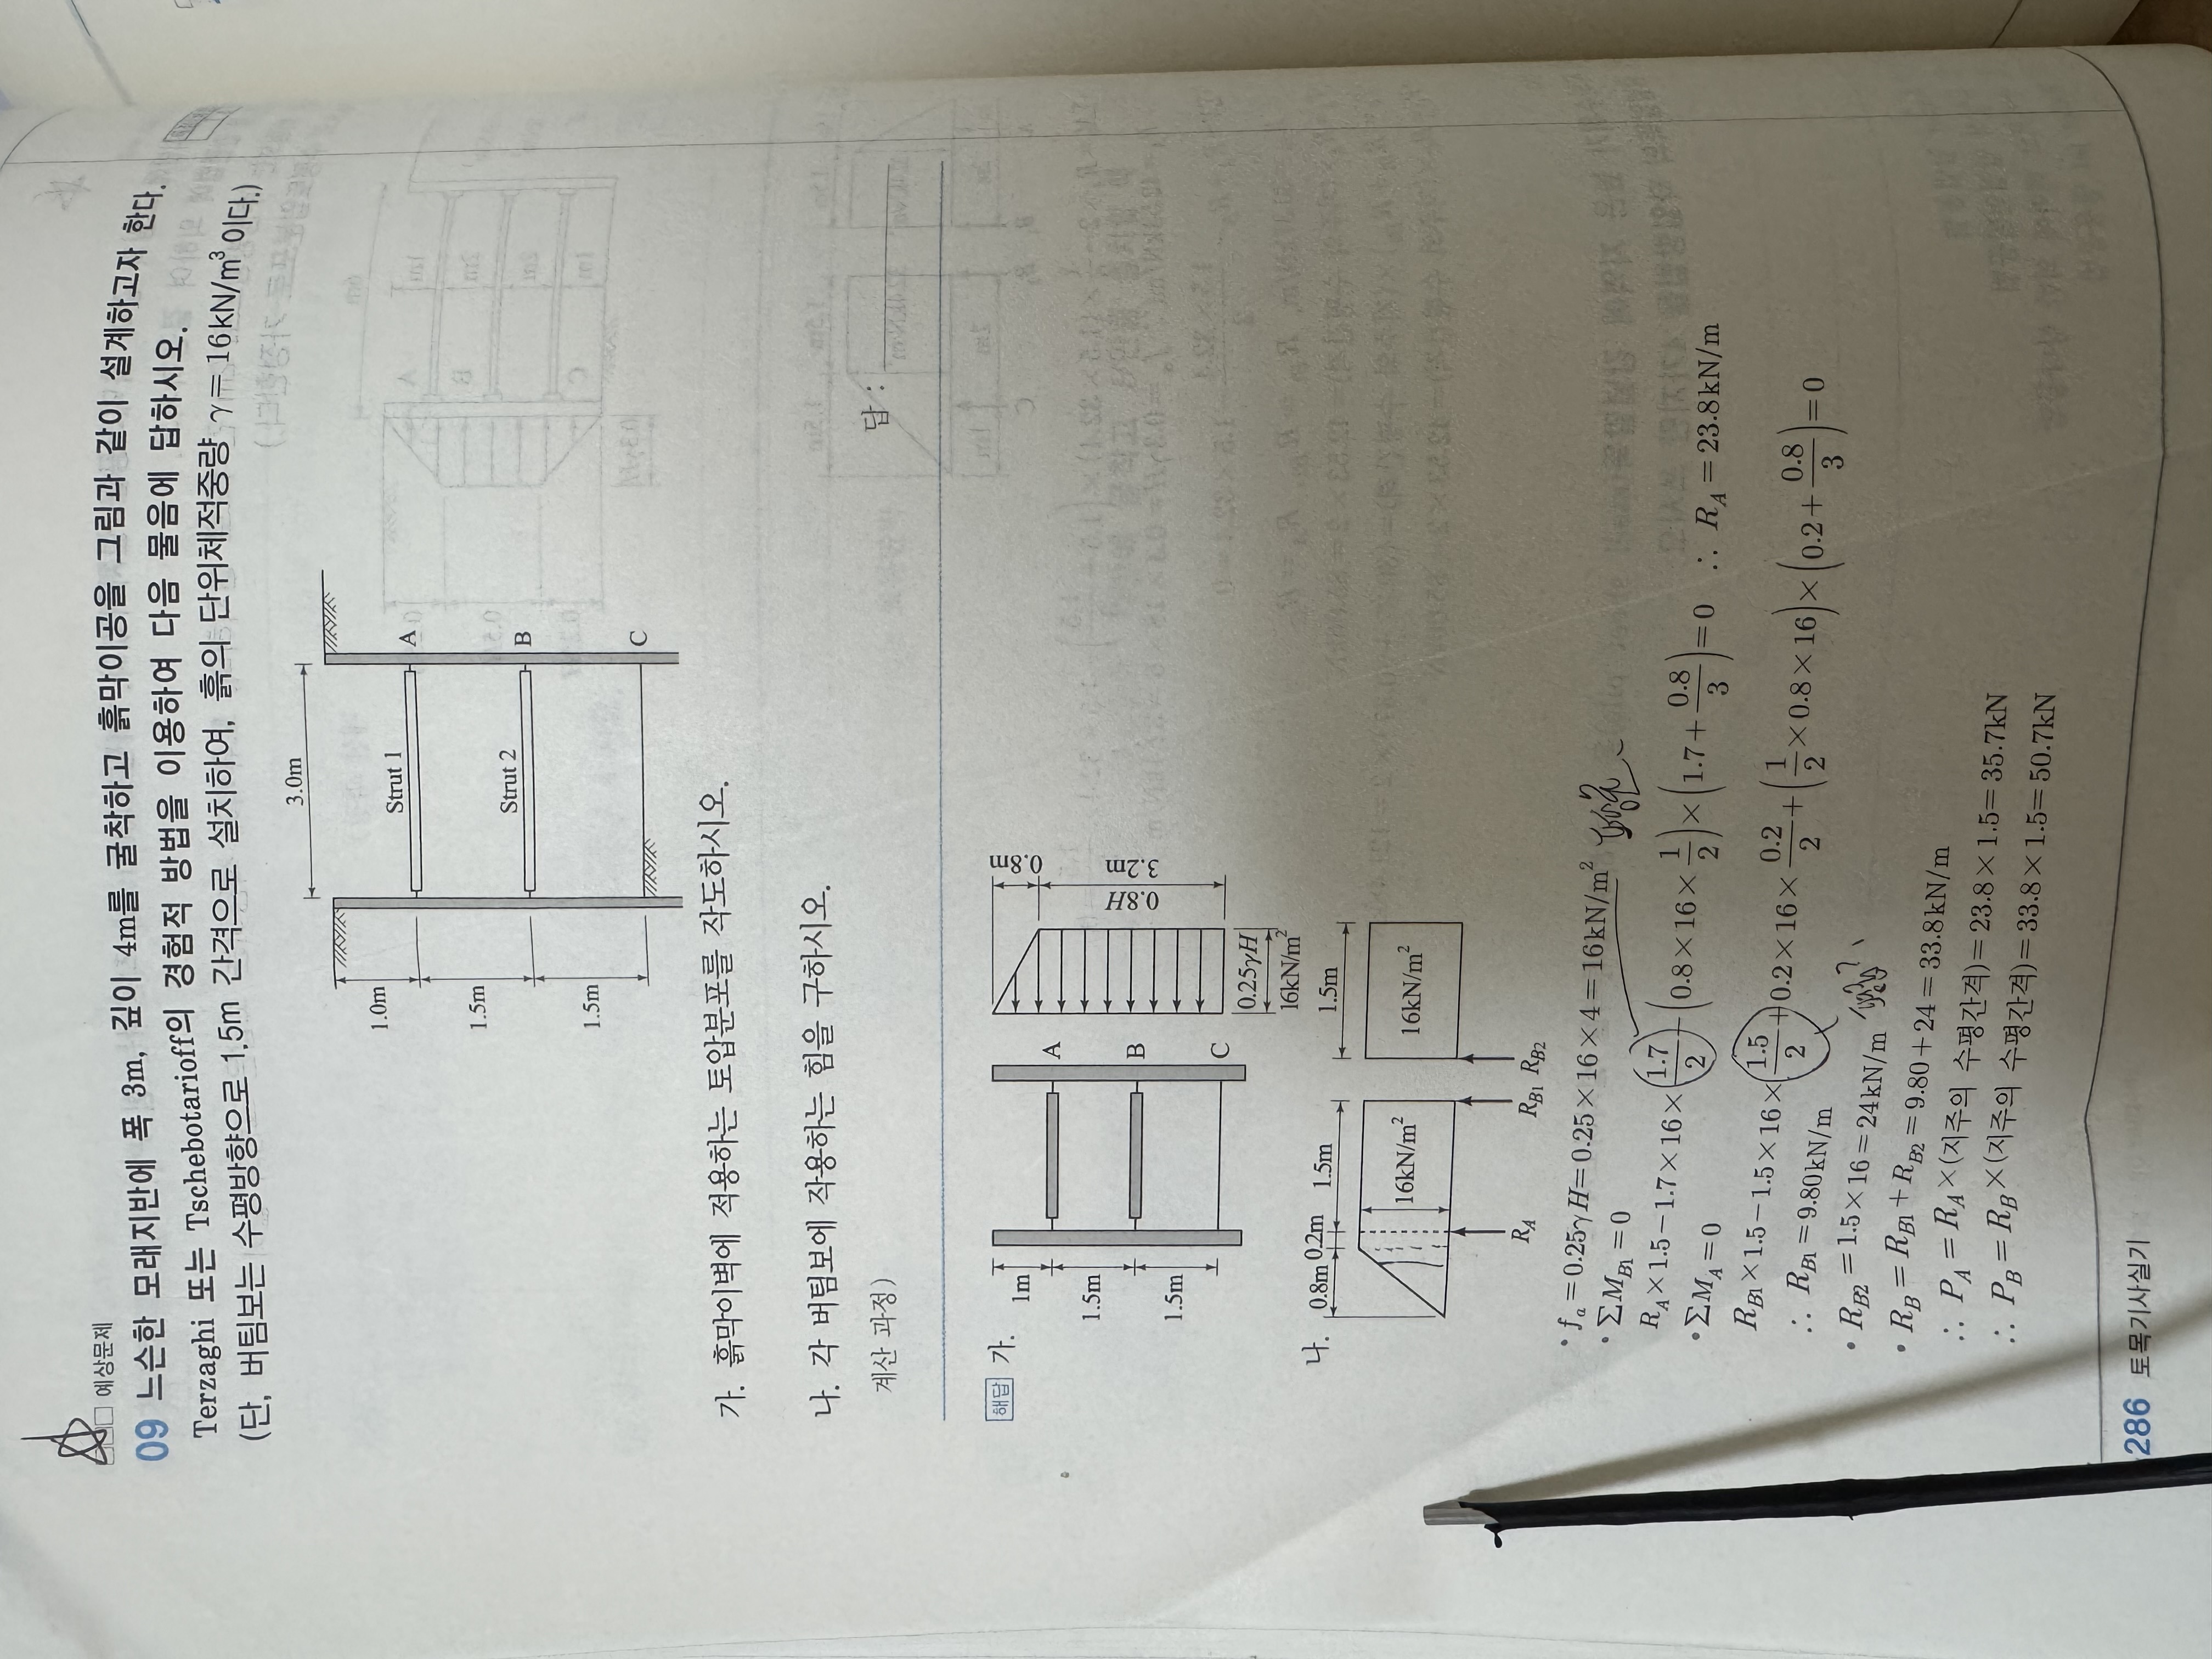 예상문제
09 느슨한 모래지반에 폭 3m, 깊이 4m를 굴착하고 흙막이공을 그림과 같이 설계하고자 한다.
Terzaghi 또는 Tschebotarioff의 경험적 방법을 이용하여 다음 물음에 답하시오.
(단, 버팀보는 수평방향으로 1.5m 간격으로 설치하여, 흙의 단위체적중량 γ=16kN/m³이다.)
3.0m
1.0m
Strut 1
A
1.5m
Strut 2
B
1.5m
C
가. 흙막이벽에 적용하는 토압분포를 작도하시오.
나. 각 버팀보에 작용하는 힘을 구하시오.
계산 과정)
답 :
해답 가.
1m
1.5m
1.5m
A
B
C
0.8m
3.2m
0.8H
0.25γH
16kN/m²
나.
0.8m 0.2m 1.5m
1.5m
16kN/m²
16kN/m²
R_A
R_B1 R_B2
• f_a=0.25γH=0.25×16×4=16kN/m²
• ΣM_B1=0
R_A×1.5−1.7×16×(1.7/2)−(0.8×16×1/2)×(1.7+0.8/3)=0 ∴ R_A=23.8kN/m
• ΣM_A=0
R_B1×1.5−1.5×16×(1.5/2)+0.2×16×0.2/2+(1/2×0.8×16)×(0.2+0.8/3)=0
∴ R_B1=9.80kN/m
• R_B2=1.5×16=24kN/m
• R_B=R_B1+R_B2=9.80+24=33.8kN/m
∴ P_A=R_A×(지주의 수평간격)=23.8×1.5=35.7kN
∴ P_B=R_B×(지주의 수평간격)=33.8×1.5=50.7kN
286 토목기사실기